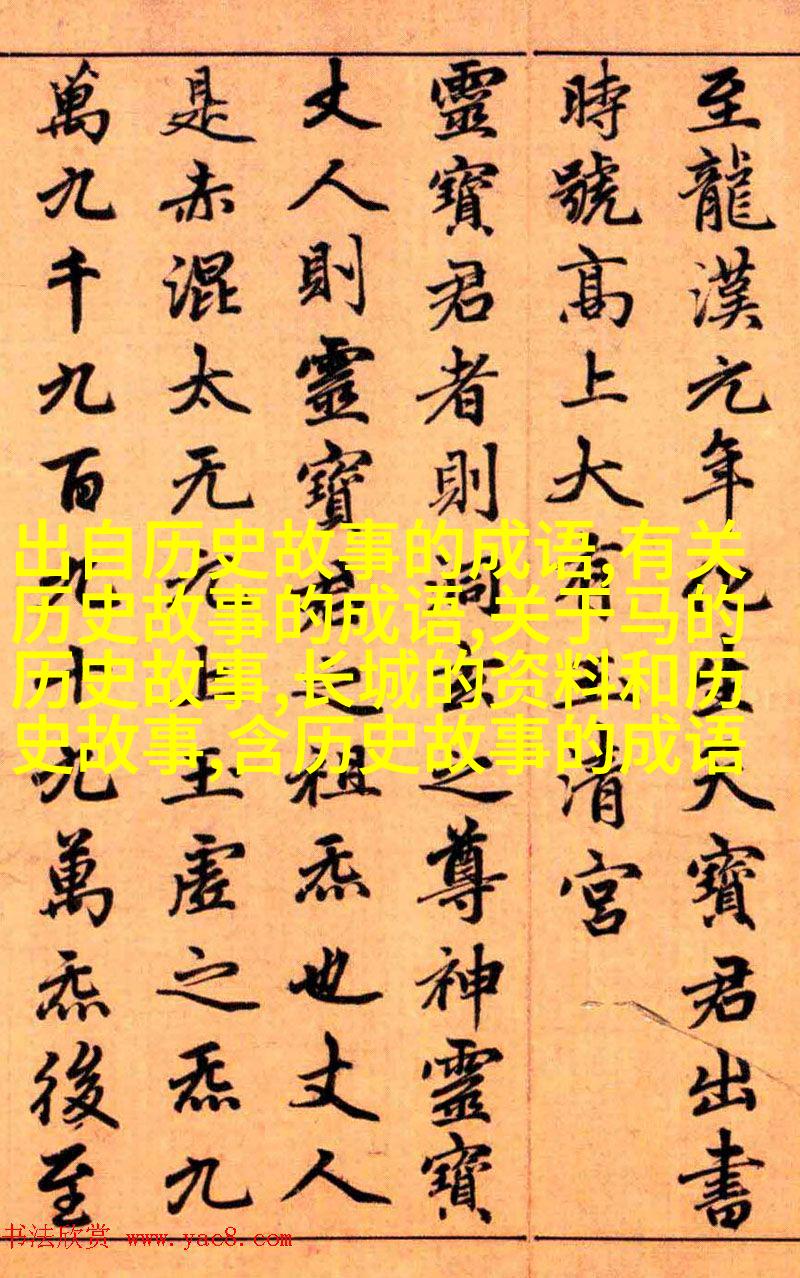 至龍漢元年化生大寶君出書
時號高上大有玉清宮
靈寶君者則洞玄之尊神靈寶
丈人則靈寶君之祖炁也丈人
是赤混太无元上玉虛之炁九
萬九千九百九十九萬炁後至
出自历史故事的成语,有关
历史故事的成语,关于马的
历史故事,长城的资料和历
史故事,含历史故事的成语
书法欣赏 www.yac8.com